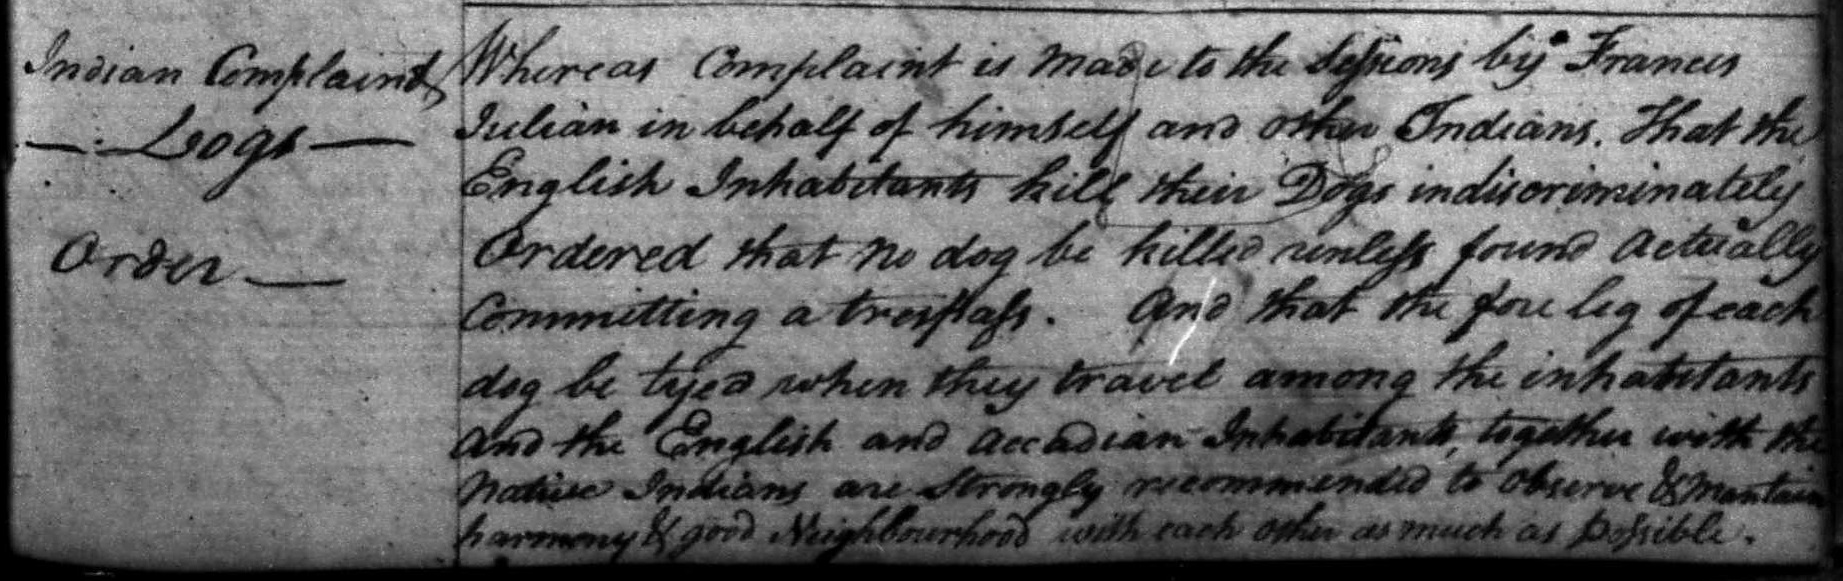 Indian Complaint
— Dogs —
Order —
Whereas Complaint is made to the Sessions by Francis
Julian in behalf of himself and other Indians. That the
English Inhabitants kill their Dogs indiscriminately
Ordered that no dog be killed unless found actually
Committing a trespass. And that the fore leg of each
dog be tyed when they travel among the inhabitants
And the English and Accadian Inhabitants, together with the
Native Indians are strongly recommended to observe & mantain
harmony & good Neighbourhood with each other as much as Possible.